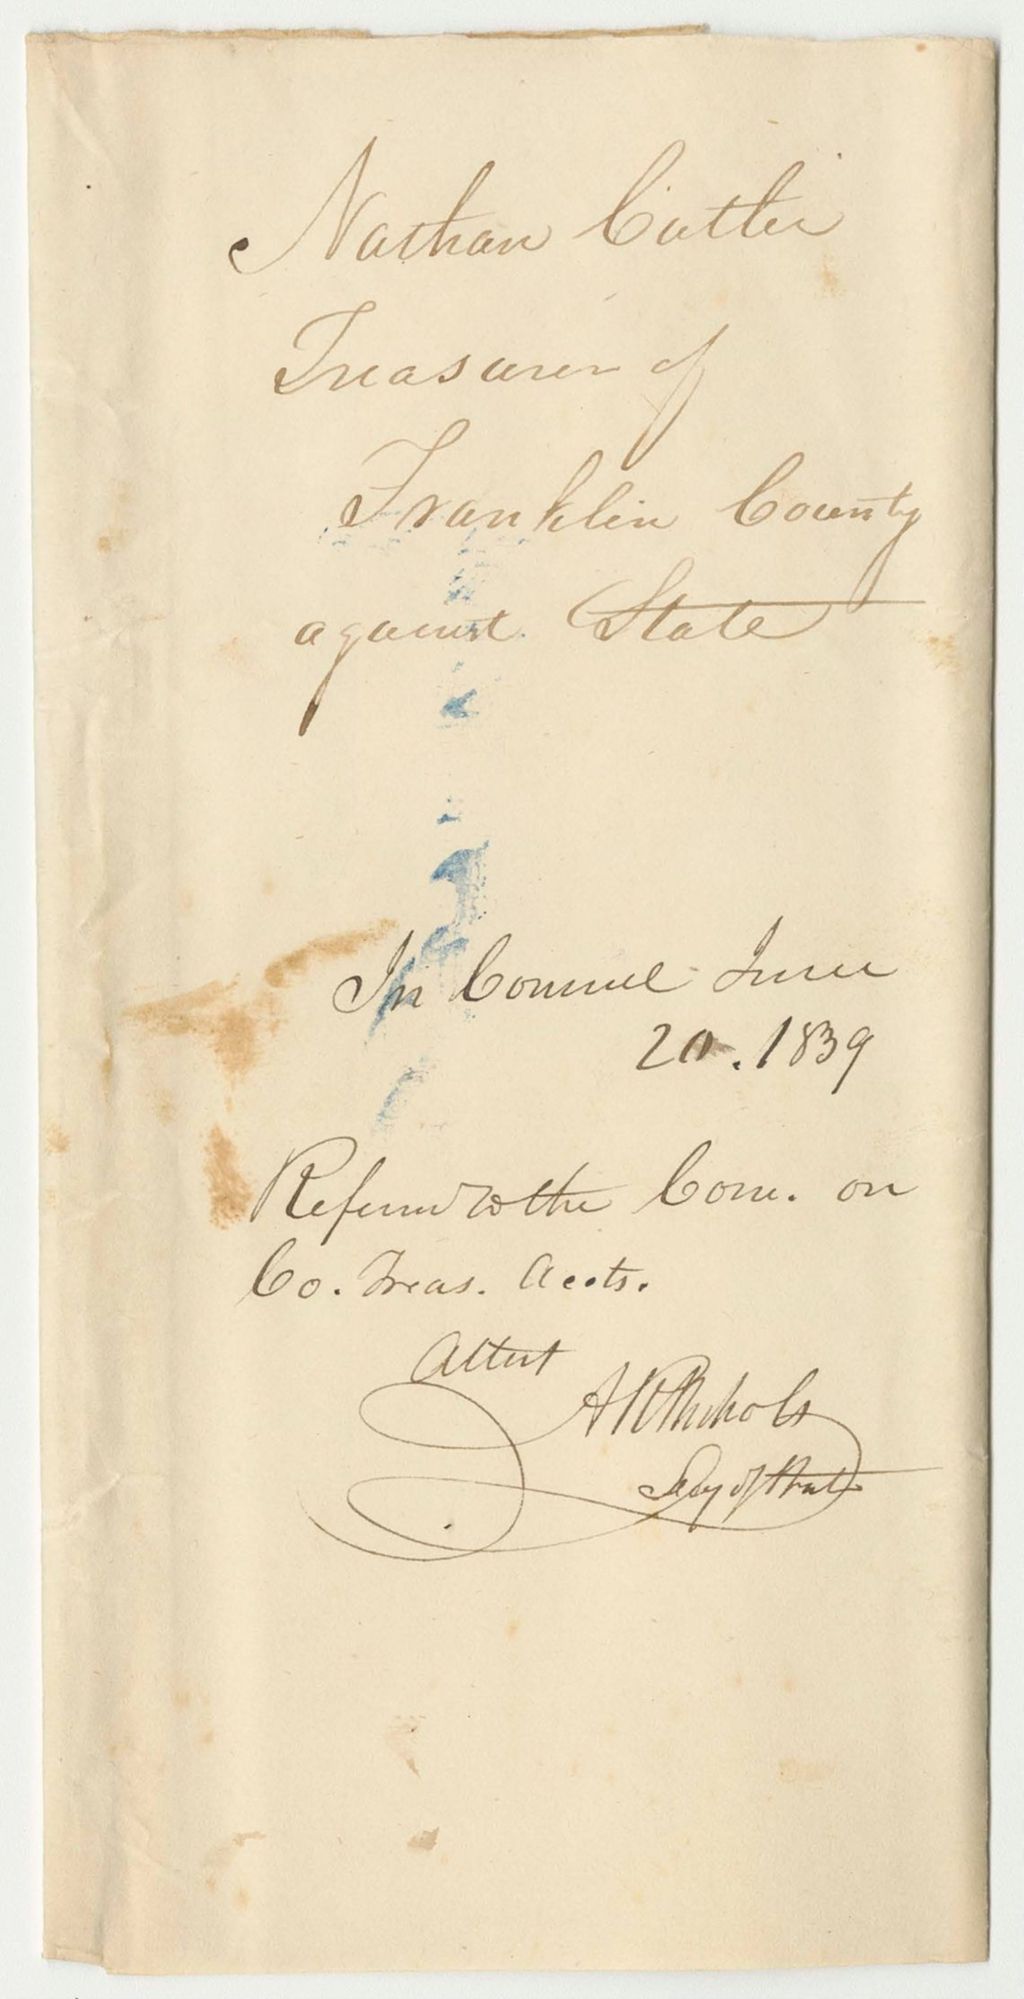 Nathan Cutler
Treasurer of
Franklin County
against State
In Council June
20. 1839
Referred to the Com. on
Co. Treas. Accts.
Attest
A R Nichols
Secy of State